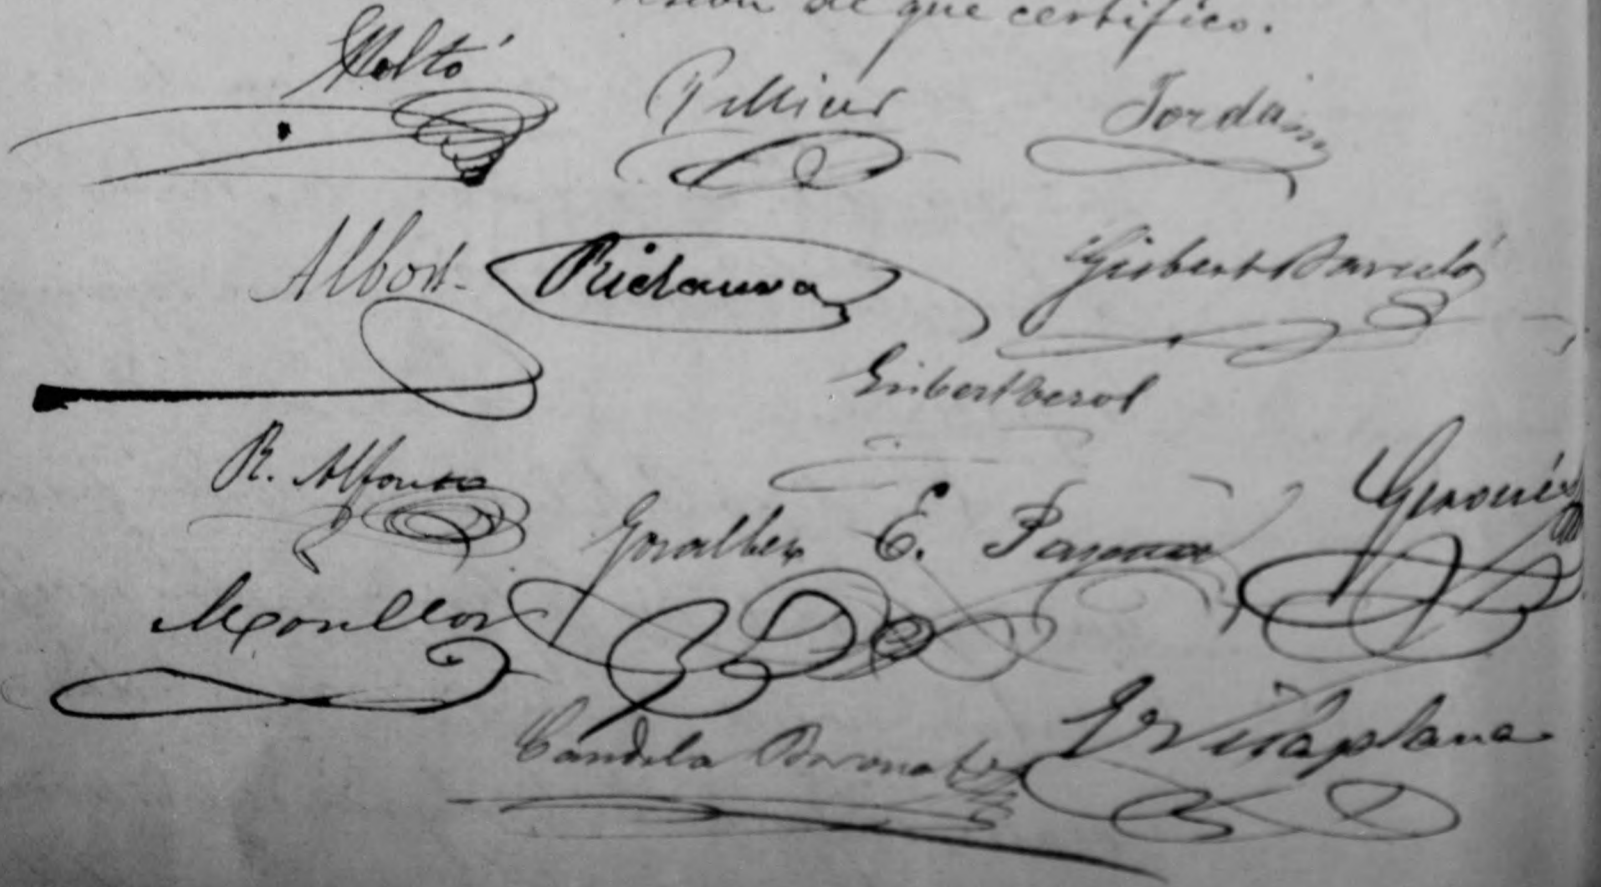 de que certifico.
Moltó Pellicer Jordá
Albort Ridaura Gisbert Barceló
Gisbert
R. Alfonso
Gosalbez E. Pascual
Monllor
Candela Boronat E Vilaplana